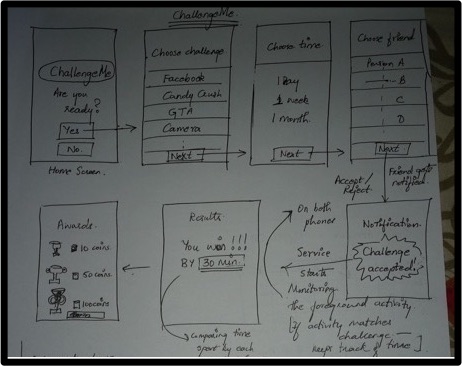 ChallengeMe
ChallengeMe
Are you
ready?
Yes
No.
Home Screen.
Choose challenge
Facebook
Candy Crush
GTA
Camera
Next
Choose time
1 Day
1 week
1 month.
Next
Choose friend
Person A
B
C
D
Next
Accept/
Reject.
Friend gets
notified.
Notification
Challenge
accepted!!
On both
phones
Service
starts
Monitoring
the foreground activity.
If activity matches
challenge —
keeps track of time].
Results.
You win !!!
BY 30 Min.
Comparing time
spent by each
Awards.
10 coins
50 coins
100 coins